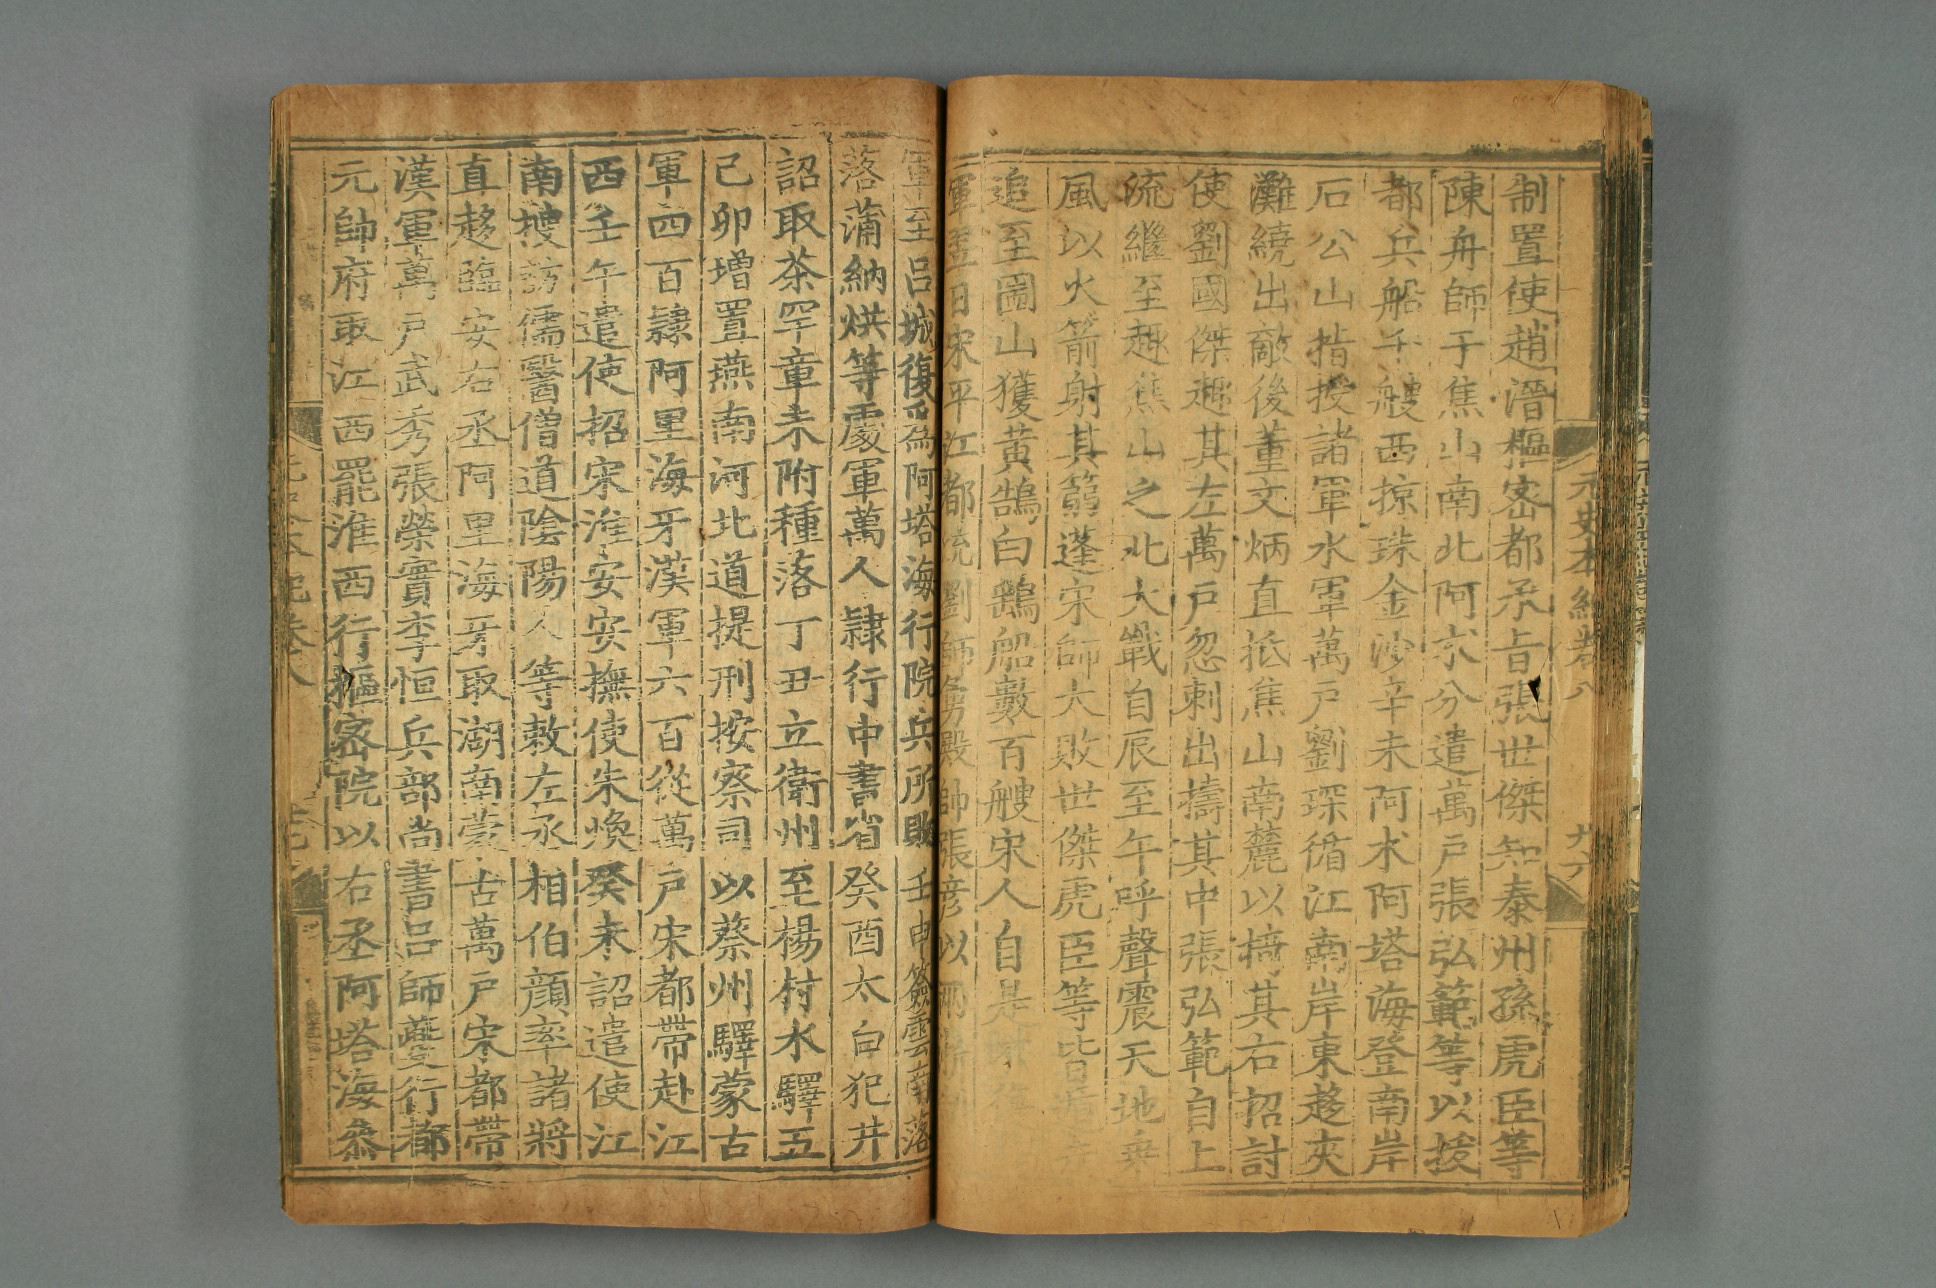 元史本紀卷八
九六
制置使趙溍樞密都承旨張世傑知泰州孫虎臣等
陳舟師于焦山南北阿朮分遣萬戶張弘範等以拔
都兵船千艘西掠珠金沙辛未阿朮阿塔海登南岸
石公山指授諸軍水軍萬戶劉琛循江南岸東趍夾
灘繞出敵後董文炳直抵焦山南麓以掎其右招討
使劉國傑趍其左萬戶忽剌出擣其中張弘範自上
流繼至趣焦山之北大戰自辰至午呼聲震天地乗
風以火箭射其篛蓬宋師大敗世傑虎臣等皆遁走
追至圌山獲黃鵠白鷂船數百艘宋人自是不
軍翌日宋平江都統劉師勇殿帥張彦以兩浙
軍至呂城復爲阿塔海行院兵所敗壬申簽雲南落
落蒲納烘等處軍萬人隷行中書省癸酉太白犯井
詔取茶罕章未附種落丁丑立衛州至楊村水驛五
己卯增置燕南河北道提刑按察司以蔡州驛蒙古
軍四百隷阿里海牙漢軍六百從萬戶宋都帶赴江
西壬午遣使招宋淮安安撫使朱煥癸未詔遣使江
南搜訪儒醫僧道陰陽人等敕左丞相伯顏率諸將
直趍臨安右丞阿里海牙取湖南蒙古萬戶宋都帶
漢軍萬戶武秀張榮實李恒兵部尚書呂師夔行都
元帥府取江西罷淮西行樞密院以右丞阿塔海叅
元史本紀卷八